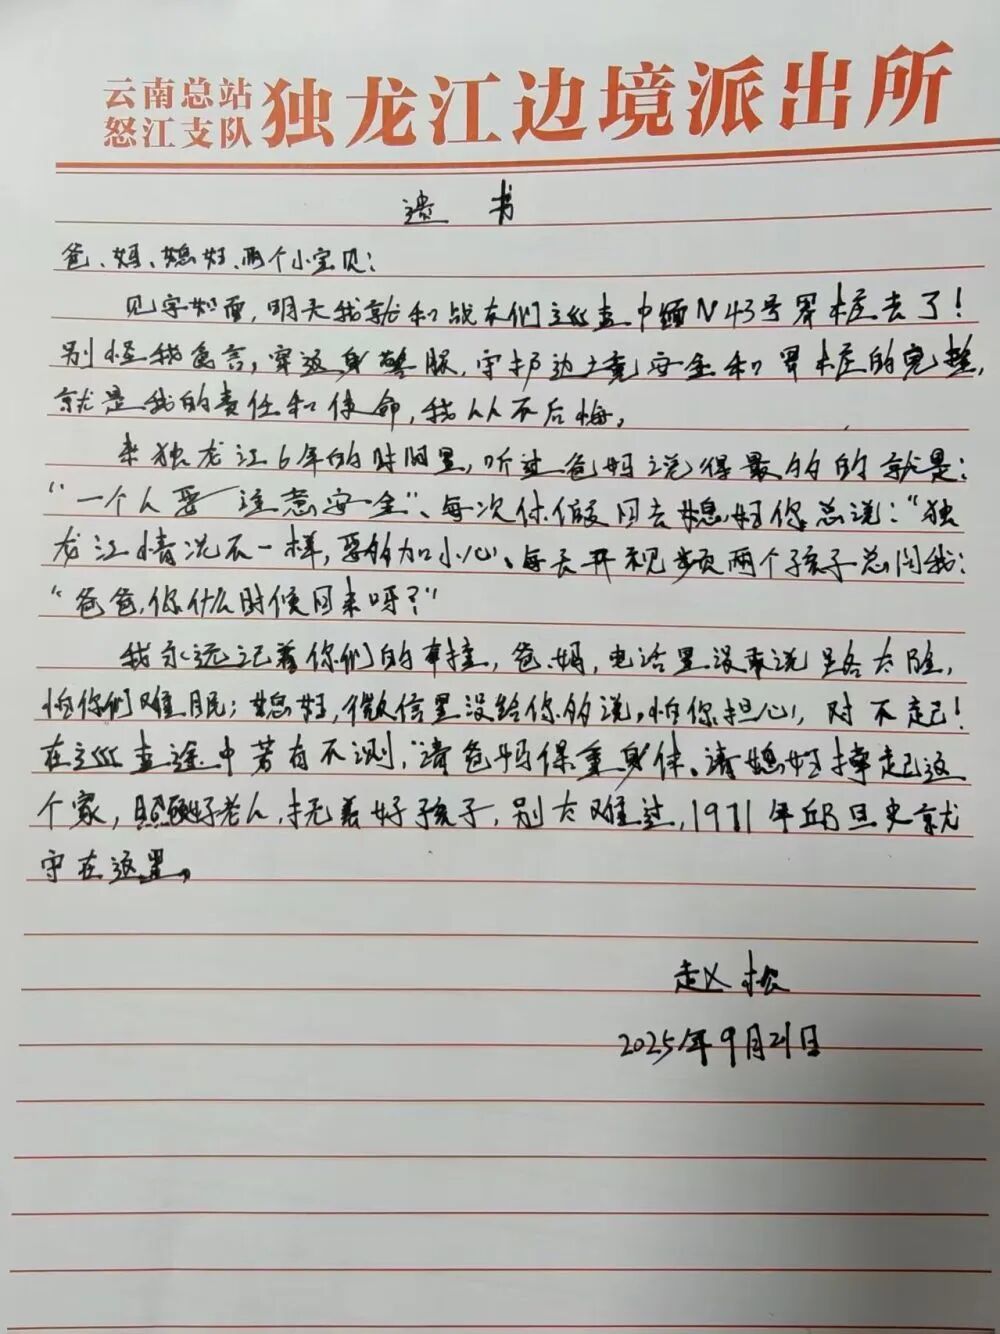 云南总站
怒江支队
独龙江边境派出所
遗书
爸、妈、媳妇、两个小宝贝：
见字如面，明天我就和战友们巡查中缅N43号界桩去了！
别怪我食言，穿这身警服，守护边境安全和界桩的完整，
就是我的责任和使命，我从不后悔。
来独龙江6年的时间里，听过爸妈说得最多的就是：
“一个人要注意安全”、每次休假回去媳妇你总说：“独
龙江情况不一样，要多加小心、每天开视频两个孩子总问我：
“爸爸，你什么时候回来呀？”
我永远记着你们的牵挂，爸、妈，电话里没敢说路太险，
怕你们难眠；媳妇，微信里没给你多说，怕你担心，对不起！
在巡查途中若有不测，请爸妈保重身体、请媳妇撑起这
个家，照顾好老人，抚养好孩子，别太难过，1971年邱旦史就
守在这里。
赵松
2025年9月21日